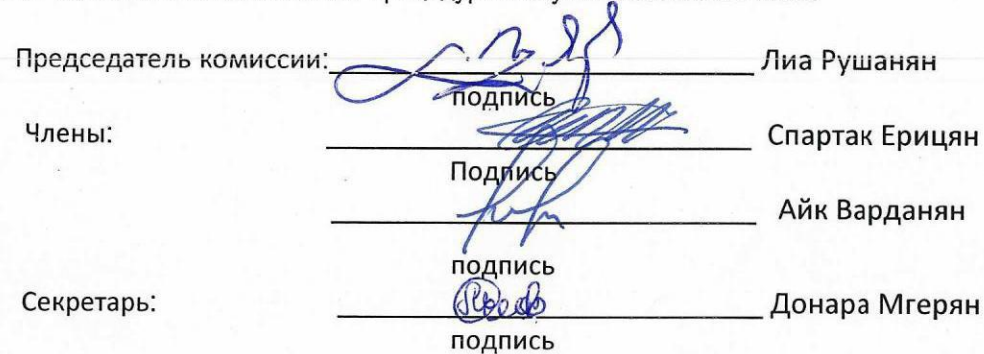 Председатель комиссии: Лиа Рушанян
подпись
Члены: Спартак Ерицян
Подпись
Айк Варданян
подпись
Секретарь: Донара Мгерян
подпись